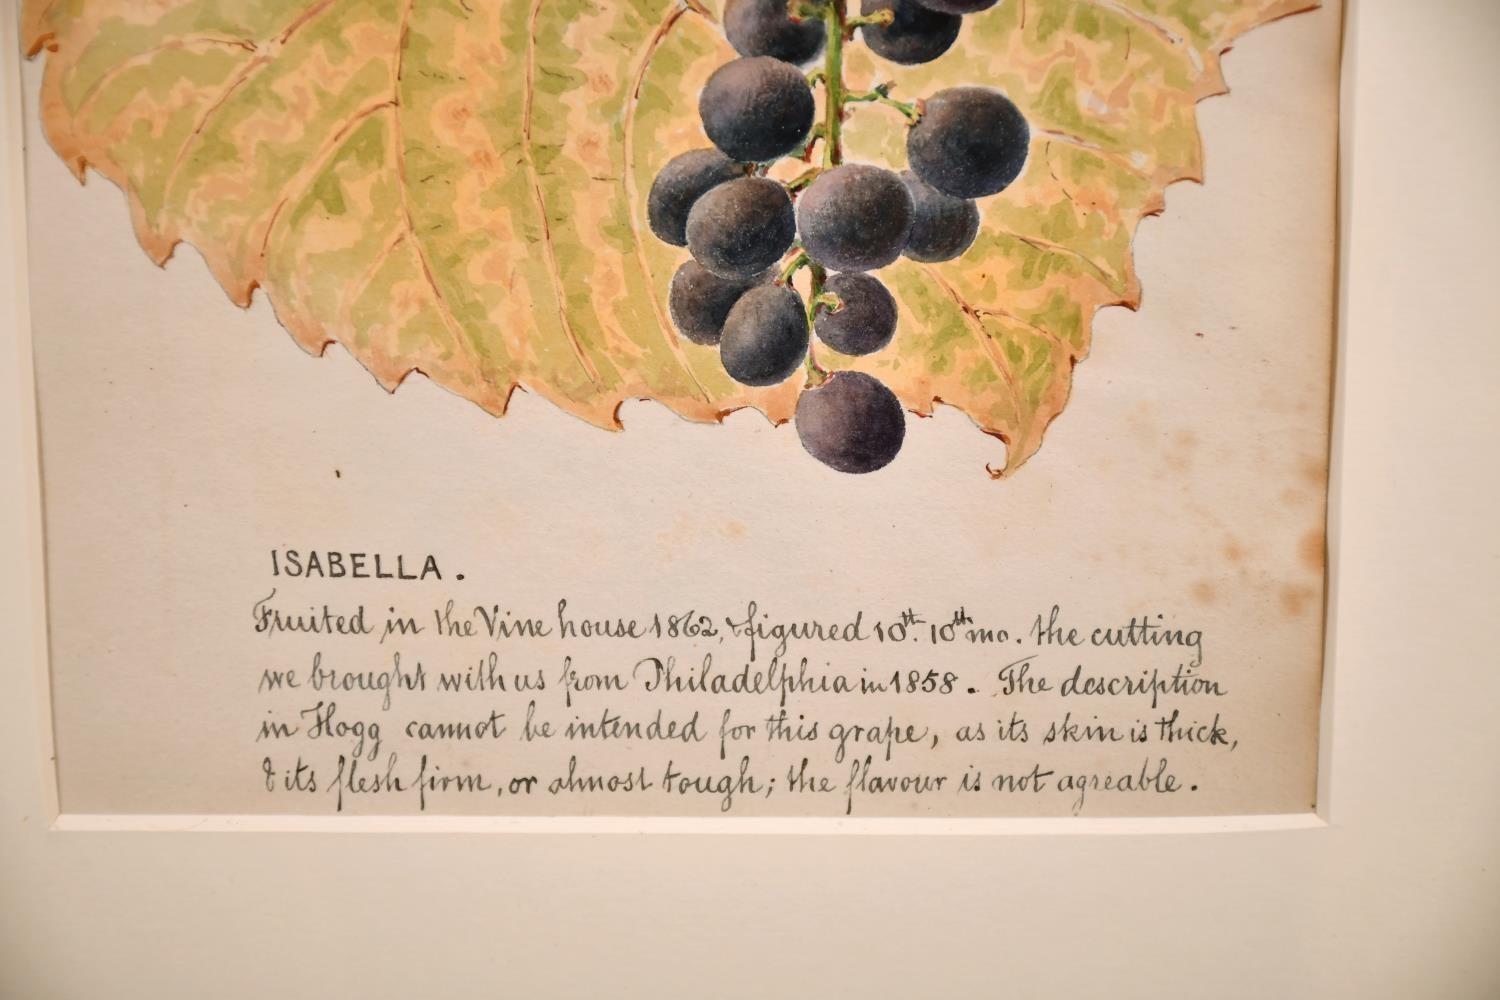 ISABELLA.
Fruited in the Vine house 1862, & figured 10th. 10th mo. the cutting
we brought with us from Philadelphia in 1858. The description
in Hogg cannot be intended for this grape, as its skin is thick,
& its flesh firm, or almost tough; the flavour is not agreable.